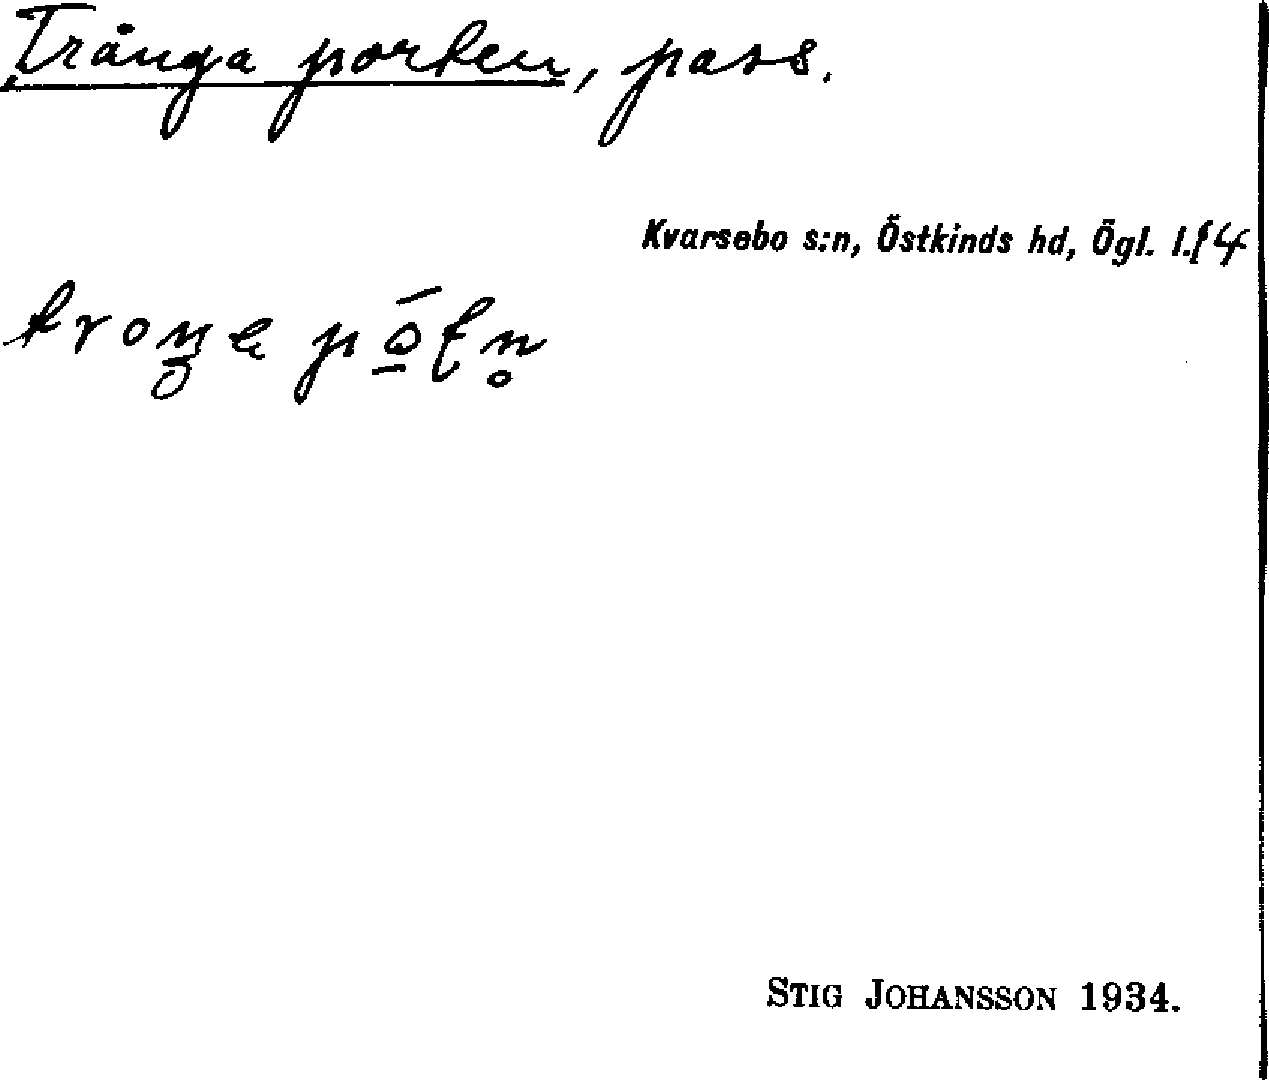 Trånga porten, pass.
Kvarsebo s:n, Östkinds hd, Ögl. l.
STIG JOHANSSON 1934.